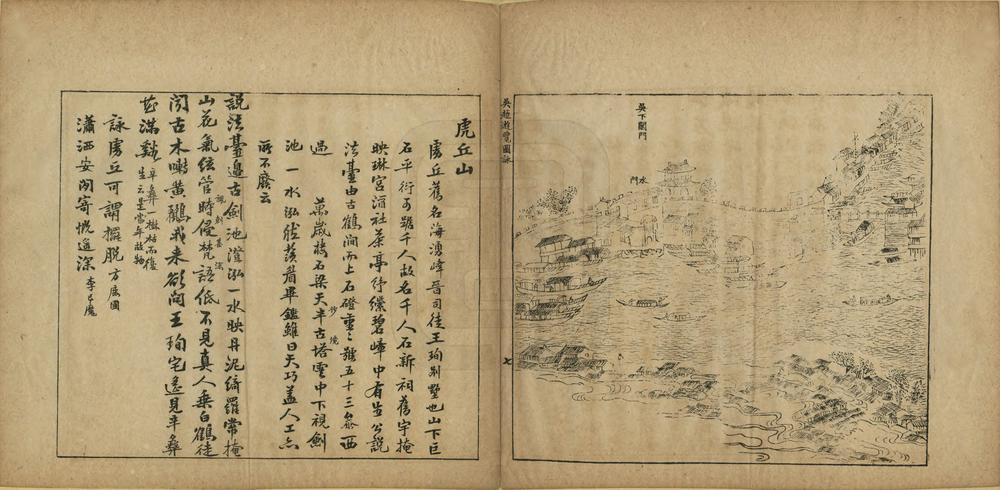 吳下閶門
水門
吳越遊覽圖詠
七
虎丘山
虎丘舊名海湧峰晉司徒王珣別墅也山下巨
石平衍可踞千人故名千人石新祠舊宇掩
映琳宮酒社茶亭紆縈碧嶂中有生公說
法臺由古鶴澗而上石磴重重號五十三參西
過 萬歲樓石梁天半古塔雲中下視劍
池 一水泓然
人工亦
所不廢云
說法臺邊古劍池澄泓一水映丹泥綺羅常掩
山花氣絃管時侵梵語低不見真人乘白鶴徒
聞古木囀黃鸝我來欲問王珣宅遙見辛彝
花滿谿
詠虎丘可謂擺脫方
瀟洒安閒寄慨遙深